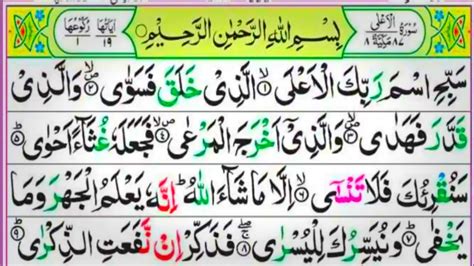 سُوْرَةُ الْاَعْلٰى ٨٧ مَكِّيَّةٌ ٨ بِسْمِ اللّٰهِ الرَّحْمٰنِ الرَّحِيْمِ اٰيَاتُهَا ١٩ رُكُوْعُهَا ١
سَبِّحِ اسْمَ رَبِّكَ الْاَعْلَى ۙ‏﴿۱﴾ الَّذِىْ خَلَقَ فَسَوّٰى ۙ‏﴿۲﴾ وَالَّذِىْ
قَدَّرَ فَهَدٰى ۙ‏﴿۳﴾ وَالَّذِىْۤ اَخْرَجَ الْمَرْعٰى ۙ‏﴿۴﴾ فَجَعَلَهٗ غُثَآءً اَحْوٰى ؕ‏﴿۵﴾
سَنُقْرِئُكَ فَلَا تَنْسٰٓى ۙ‏﴿۶﴾ اِلَّا مَا شَآءَ اللّٰهُ ؕ اِنَّهٗ يَعْلَمُ الْجَهْرَ وَمَا
يَخْفٰى ؕ‏﴿۷﴾ وَنُيَسِّرُكَ لِلْيُسْرٰى ۚ ۖ‏﴿۸﴾ فَذَكِّرْ اِنْ نَّفَعَتِ الذِّكْرٰى ؕ‏﴿۹﴾